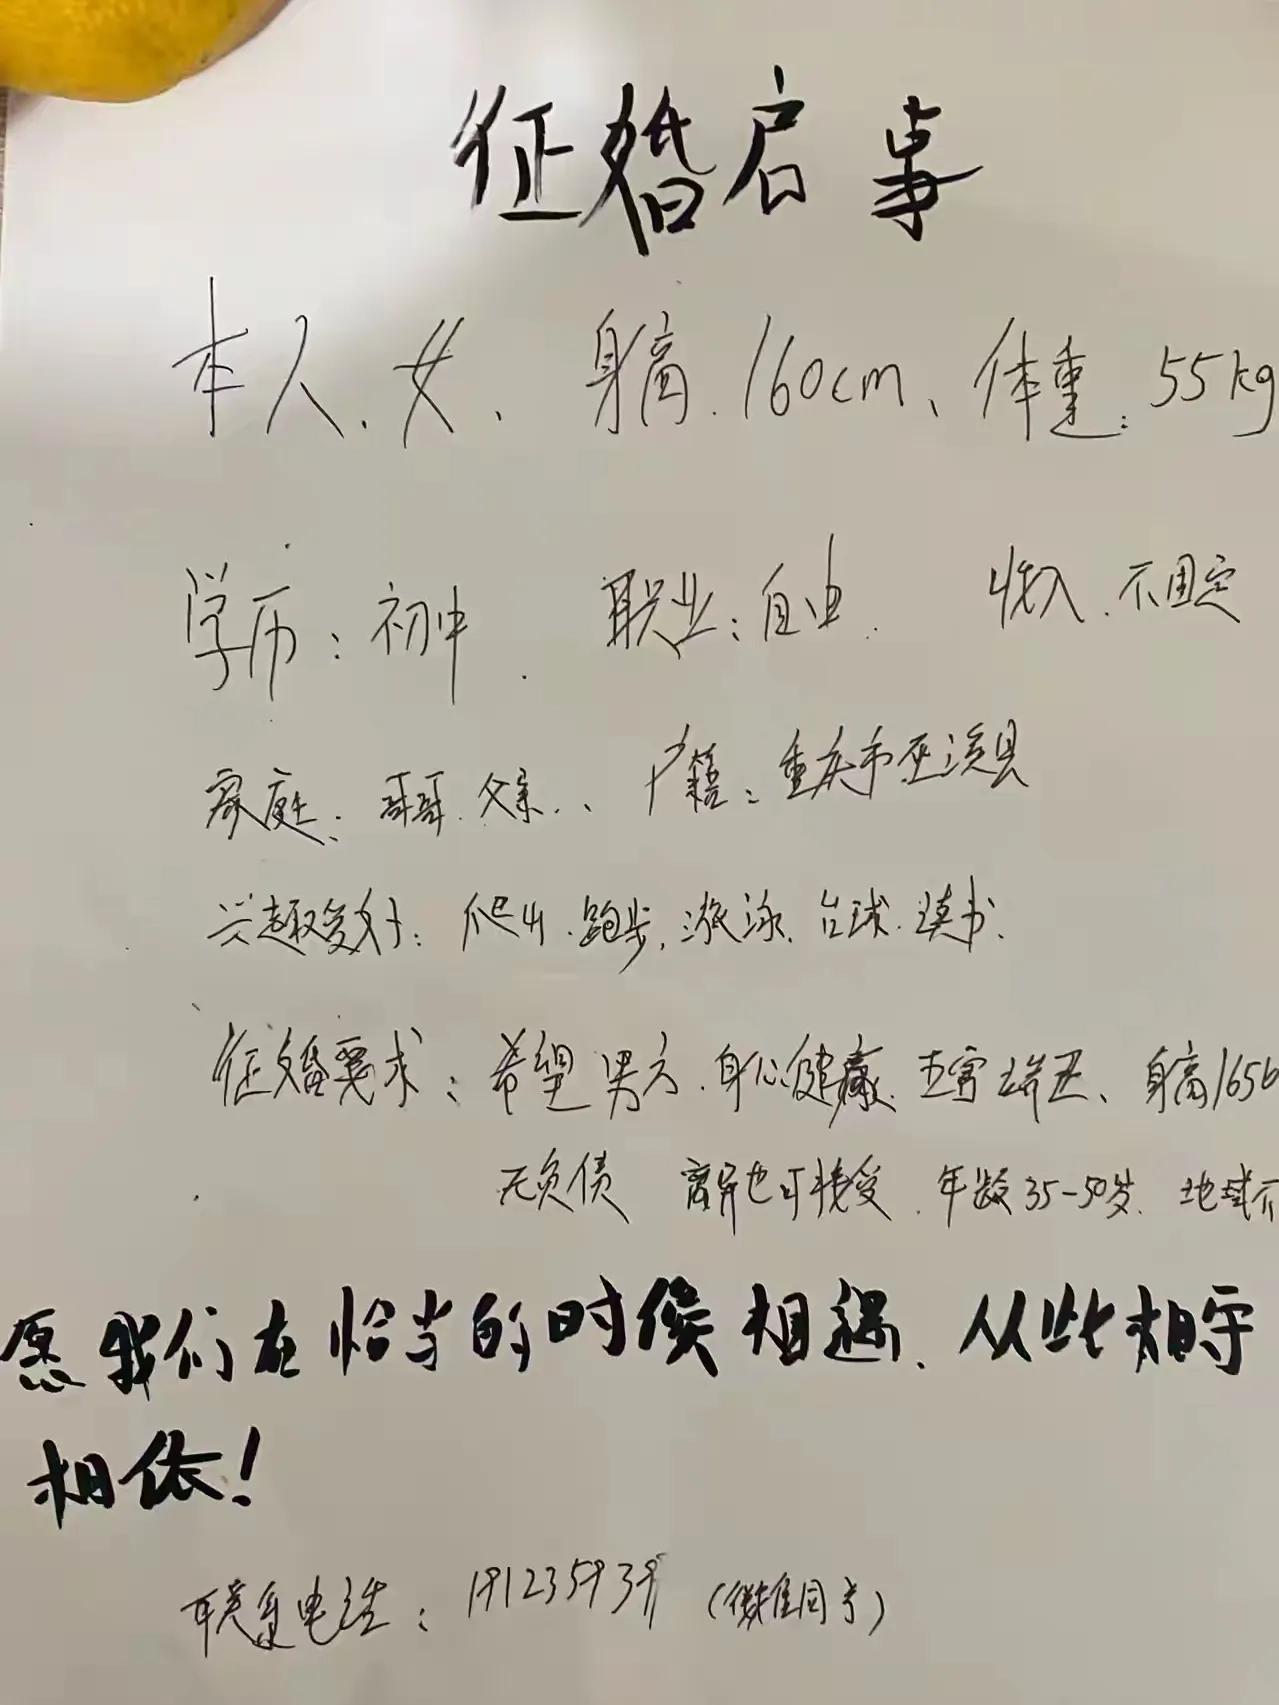 征婚启事
本人、女、身高.160cm、体重:55kg
学历:初中. 职业:自由. 收入.不固定
家庭:哥哥.父亲.、户籍:重庆市巫溪县
兴趣爱好:爬山.跑步,游泳.台球.读书.
征婚要求:希望男方.身心健康.五官端正、身高165
无负债 离异也可接受.年龄35-50岁.地域不
愿我们在恰当的时候相遇.从此相守
相依!
联系电话: (微信同号)